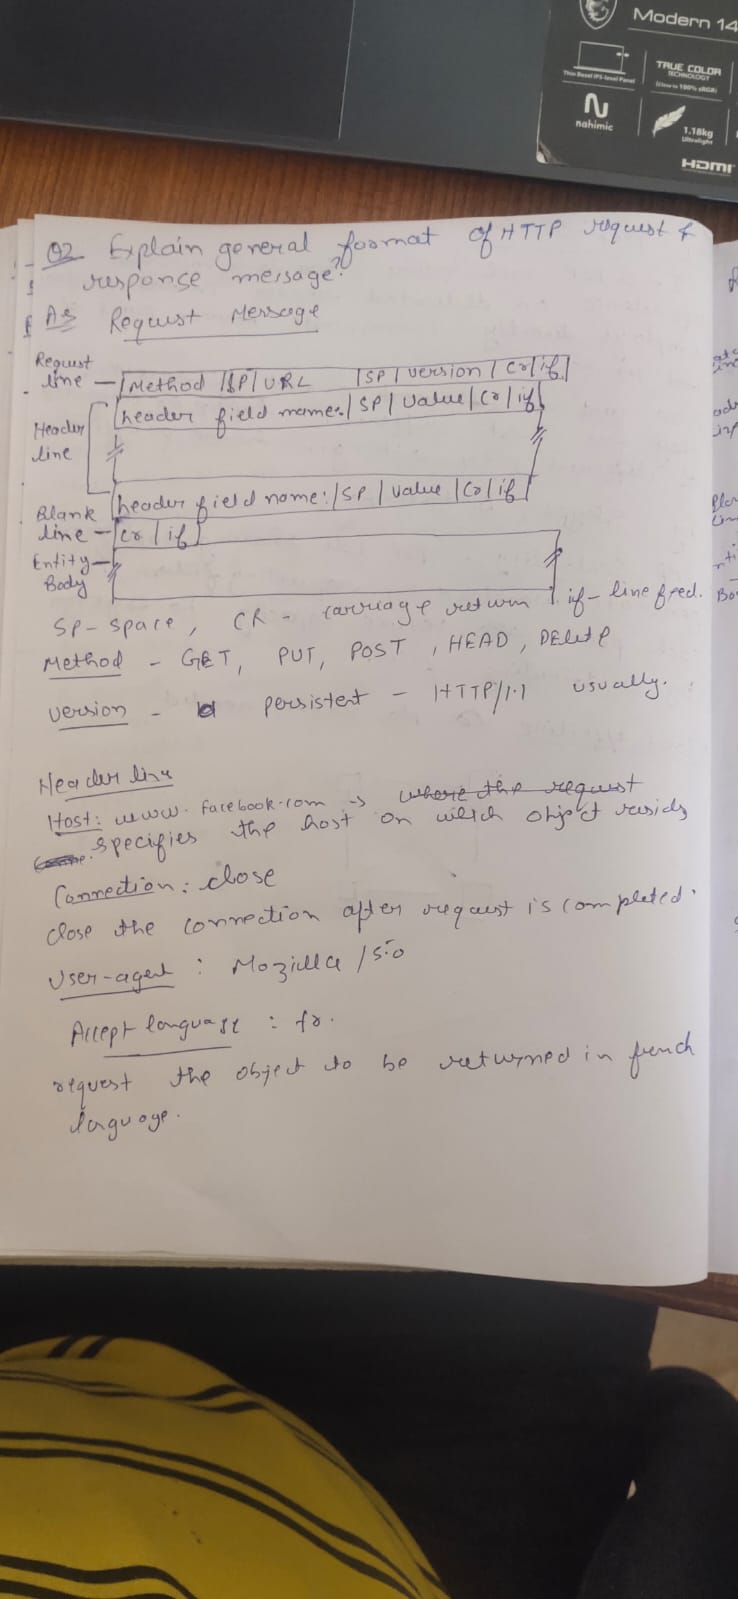 Modern 14
Thin Bezel IPS-level Panel
TRUE COLOR
TECHNOLOGY
(Close to 100% sRGB)
nahimic
1.18kg
Ultralight
HDMI
Q2 Explain general format of HTTP request &
response message?
As Request Message
Request
line — | Method | SP | URL | SP | version | Cr | if |
Header
line
header field name: | SP | value | Cr | if
header field name: | SP | value | Cr | if
Blank
line — | cr | if |
Entity
Body
SP - space, CR - carriage return if - line feed.
Method - GET, PUT, POST, HEAD, DELETE
version - persistent - HTTP/1.1 usually.
Header line
Host: www.facebook.com → where the request
specifies the host on which object resids
Connection: close
close the connection after request is completed.
User-agent : Mozilla /5.0
Accept language : fr.
request the object to be returned in french
language.